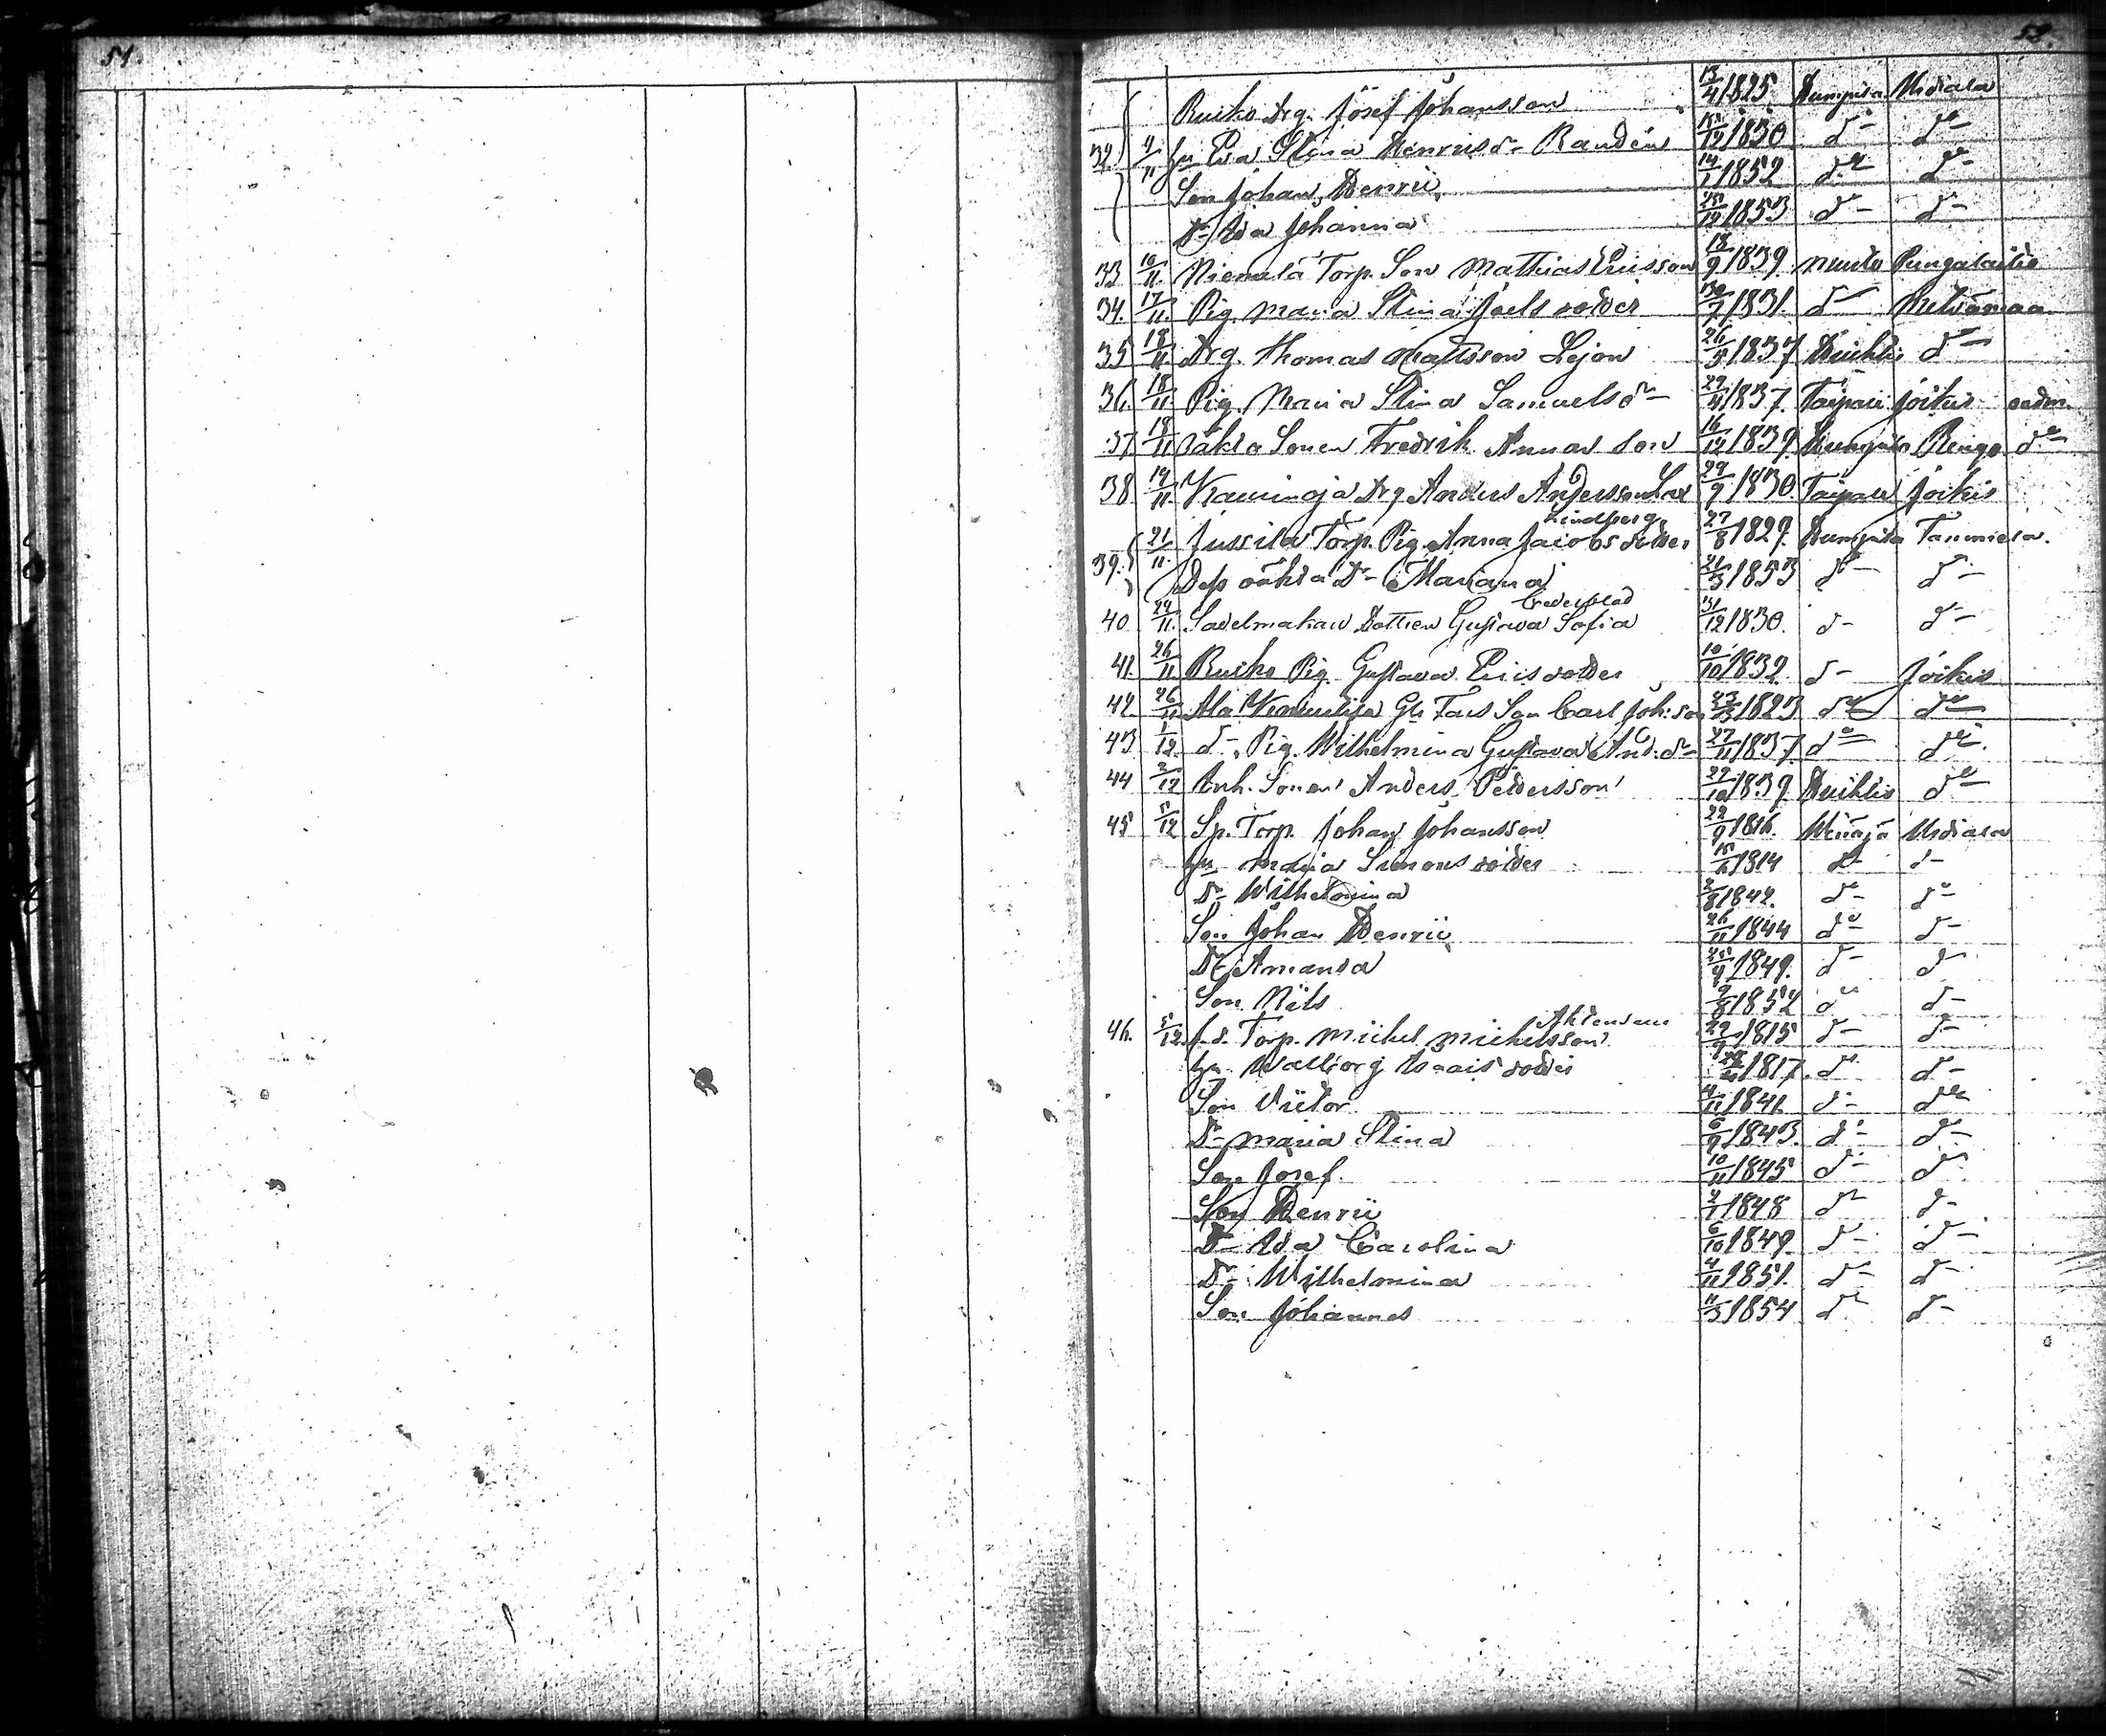 51.
52.
Rusko Drg. Josef Johansson 13/4 1825 Kumpila Urdiala
32. 9/11 hu Eva Stina Henricsdr Randén 1830 do do
Son Johan Henric 14/1 1852 do do
Dr Eva Johanna 25/12 1853 do do
33 10/11 Niemelä Torp. Son Mathias Ericsson 18/9 1839 Pungalaitio
34. 17/11 Pig. Maria Stina Joels dotter 30/7 1831. do Metsämaa
35 18/11 Drg. Thomas Mattsson Lejon 26/5 1837 do
36. 18/11 Pig. Maria Stina Samuelsdr 1837. Taipale Jockis
37 18/11 oäkta Sonen Fredrik Annas son 16/12 1839. Rengo do
38 19/11 Drg Anders Andersson 29/9 1830. Taipale Jockis
39. 21/11 Jussila Torp. Pig. Anna Jacobsdotter Lindberg 27/8 1827. Tammela.
Dess oäkta Dr Mariana 21/3 1853 do do
40 24/11 Dottren Gustava Sofia Cederblad 31/12 1830. do do
41. 26/11 Rusko Pig. Gustava Ericsdotter 10/10 1832 do Jockis
42. 26/11 Son Carl Joh:son 1823 do do
43 1/12 do Pig. Wilhelmina Gustava And:dr 27/11 1837. do do
44 2/12 Enk. Sonen Anders Pettersson 1839. do
45 5/12 Sp. Torp. Johan Johansson 22/9 1816. Urdiala
hu Maria Simonsdotter 1814 do do
Dr Wilhelmina 1842. do do
Son Johan Henric 26/11 1844 do do
Dr Amanda 1849. do do
Son Nils 1852 do do
46. 5/12 f.d. Torp. Michel Michelsson 22/9 1815 do do
hu Walborg Isaacsdotter 1817. do do
Son Victor 1841. do do
Dr Maria Stina 6/9 1843. do do
Son Josef 10/11 1845 do do
Son Henric 1848 do do
Dr Eva Carolina 6/10 1849. do do
Dr Wilhelmina 4/11 1851. do do
Son Johannes 11/3 1854 do do